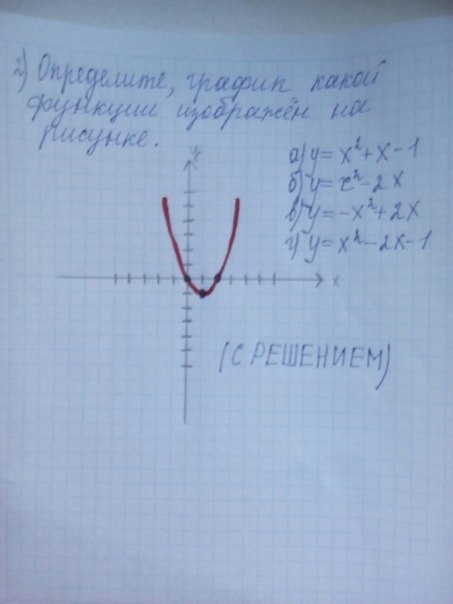 2) Определите, график какой
функции изображён на
рисунке.
а) y = x² + x - 1
б) y = x² - 2x
в) y = -x² + 2x
г) y = x² - 2x - 1
y
x
(С РЕШЕНИЕМ)